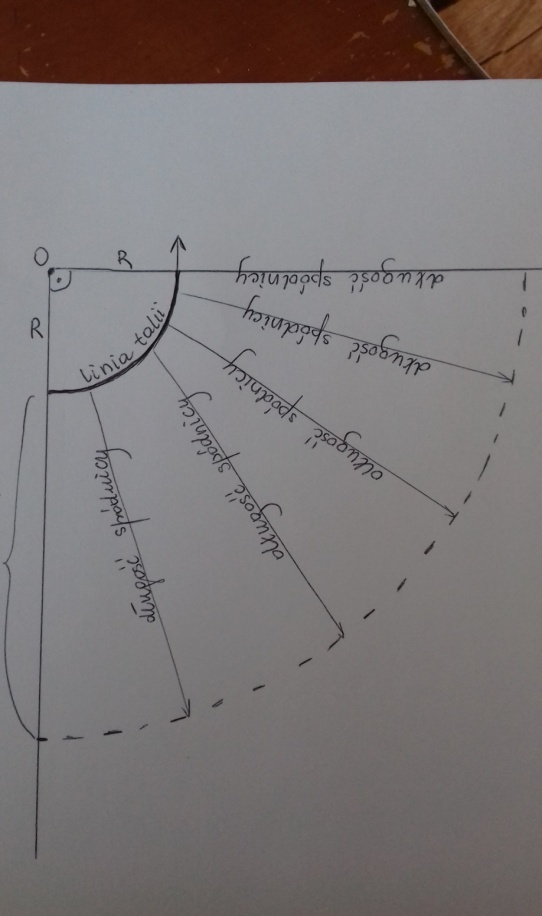 O
R
R
linia talii
długość spódnicy
długość spódnicy
długość spódnicy
długość spódnicy
długość spódnicy